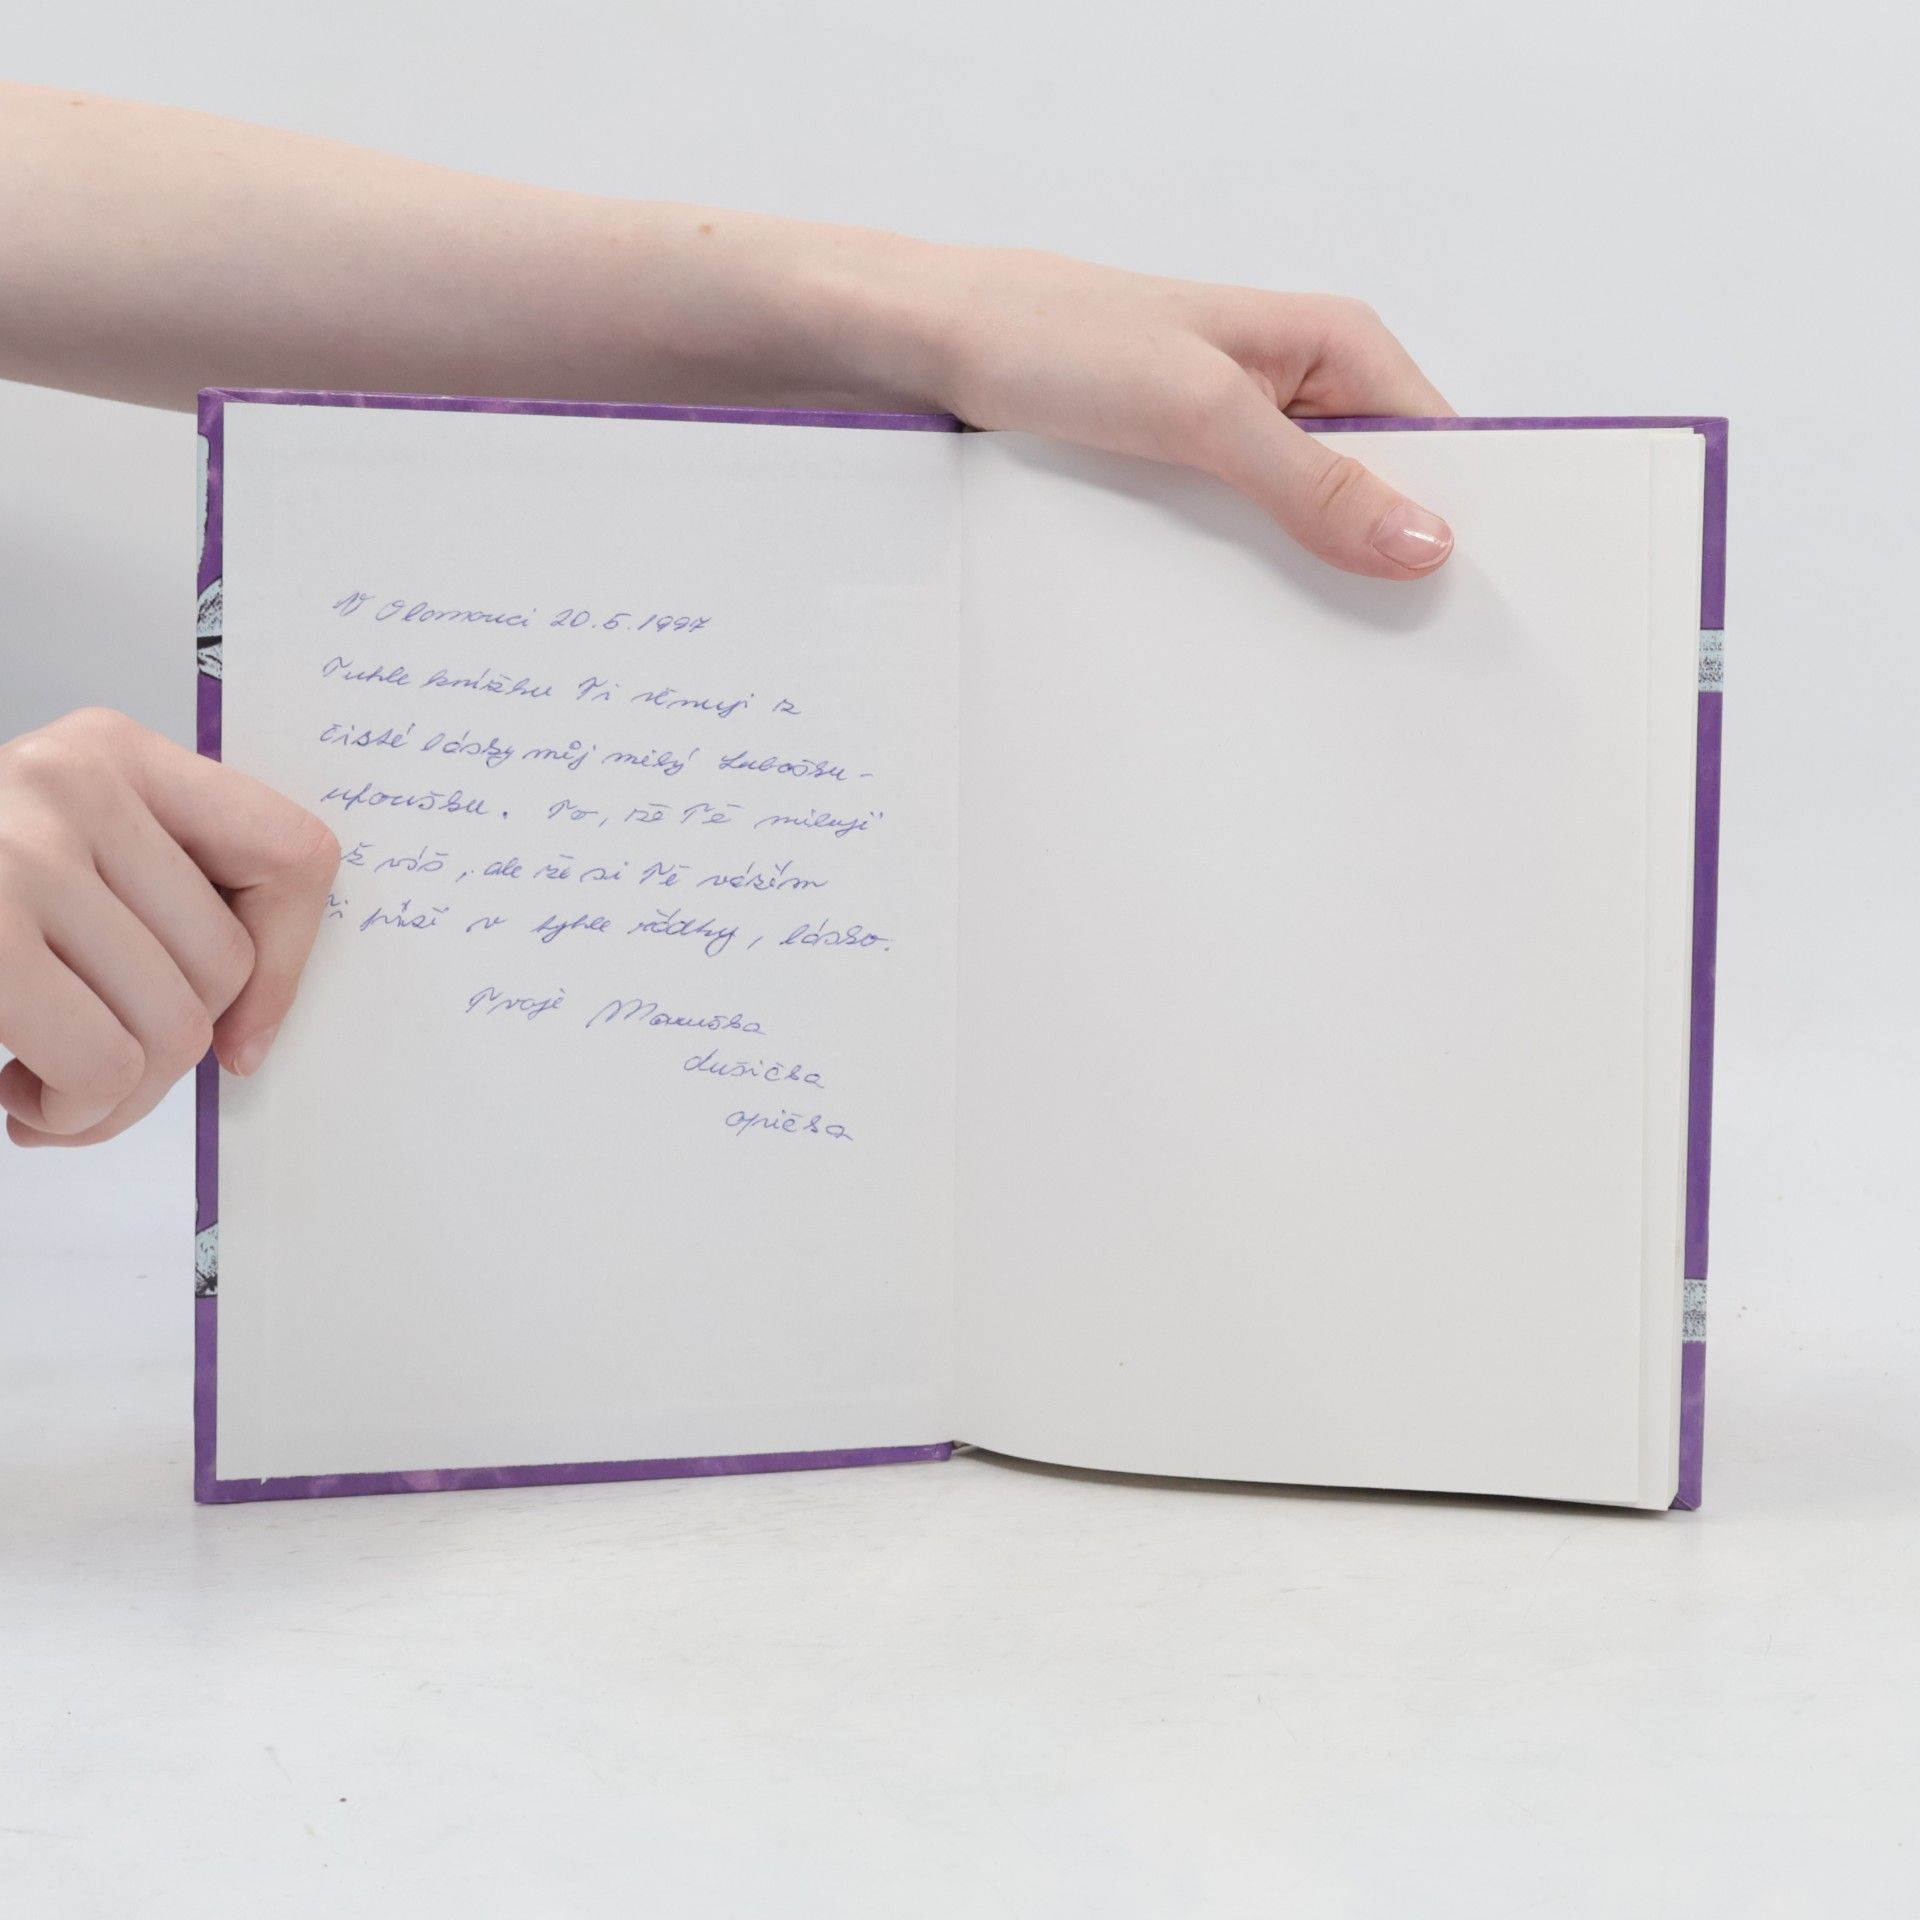 V Olomouci 20.5.1997
Tuhle knížku Ti věnuji z
čisté lásky můj milý Lubošku-
ufoušku. To, že Tě miluji
už víš, ale že si Tě vážím
Ti píši v tyhle řádky, lásko.
Tvoje Maruška
dušička
opička